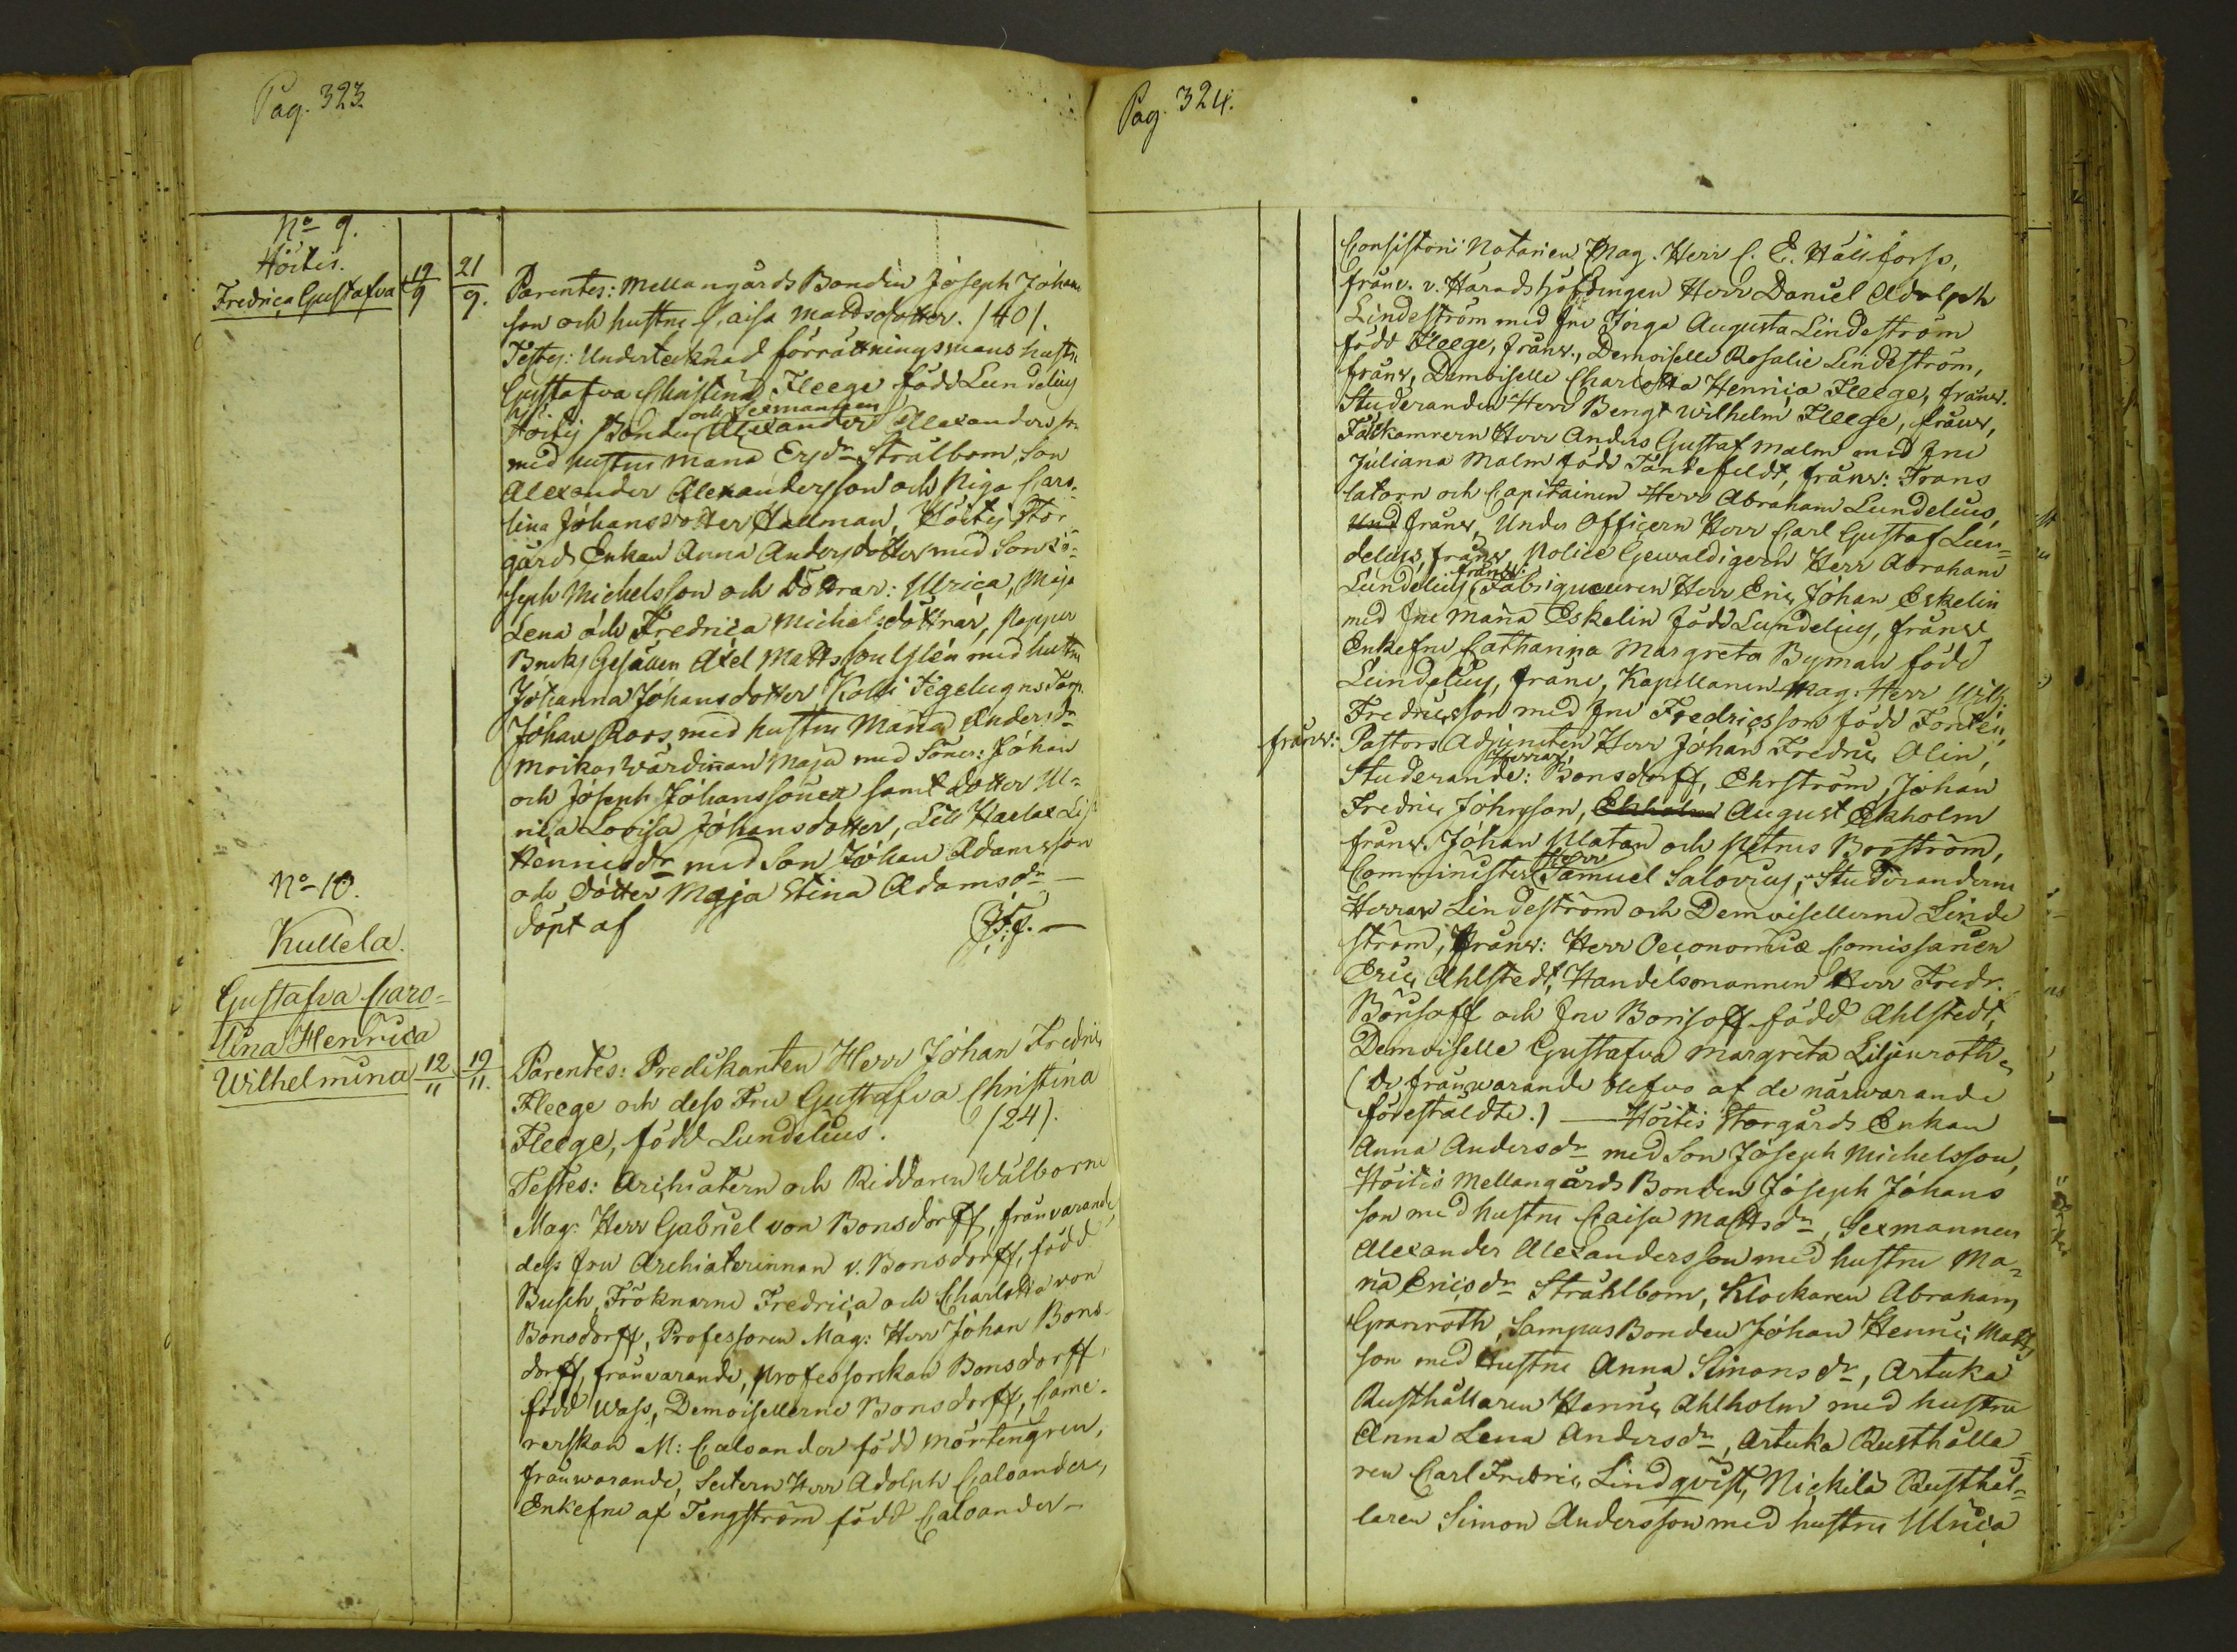 Pag. 323.
No 9.
Höitis.
Fredrica Gustafva 19/9 21/9.
Parentes: Mellangårds Bonden Joseph Johans
son och hustru Caisa Mattsdotter. /40/.
Testes: Undertecknad förrättningsmans hustru
Gustafva Christina Fleege, född Lundelius
och Sexmannen
Höitis Bonden Alexander Alexanderss:
med hustru Maria Ersdr Strålbom, Son
Alexander Alexandersson och Piga Caro-
lina Johansdotter Hallman, Höitis Stor
gårds Enkan Anna Andersdotter med Son Jo-
seph Michelsson och Döttrar: Ulrica, Maja
Lena och Fredrica Michelsdöttrar, Pappers
Bruks Gesällen Axel Mattsson med hustru
Johanna Johansdotter, Tegelugns Torp.
Johan Roos med hustru Maria Andersdr
Moikas Wärdinnan Maja med Söner: Johan
och Joseph Johanssöner samt dotter Ul-
rica Lovisa Johansdotter, Lill Harlax Lis
Henricsdr med Son Johan Adamsson
och Dotter Maja Stina Adamsdr —
döpt af J.F.F. —
No 10.
Kullela.
Gustafva Caro-
lina Henrica
Wilhelmina 12/11 19/11.
Parentes: Predikanten Herr Johan Fredric
Fleege och dess Fru Gustafva Christina
Fleege, född Lundelius. /24/.
Testes: Archiatern och Riddaren Wälborne
Mag: Herr Gabriel von Bonsdorff, frånvarande,
dess fru Archiaterinnan v. Bonsdorff, född
Busch, Fröknarne Fredrica och Charlotta von
Bonsdorff, Professoren Mag: Herr Johan Bons-
dorff, frånvarande, Professorskan Bonsdorff,
född Wass, Demoisellerne Bonsdorff, Came-
rerskan M: Caloander född Mörtengren,
frånwarande, Herr Adolph Caloander,
Enkefru af Tengström född Caloander —
Pag. 324.
Consistorii Notarien Mag. Herr C. E. Hällfors,
frånv. v. Häradshöfdingen Herr Daniel Adolph
Lindeström med fru Inga Augusta Lindeström
född Fleege, frånv., Demoiselle Rosalie Lindeström,
frånv, Demoiselle Charlotta Henrica Fleege, frånv.
Studeranden Herr Bengt Wilhelm Fleege, frånv,
Fältkamrern Herr Anders Gustaf Malm med fru
Juliana Malm född Tandefeldt, frånv: Trans
latorn och Capitainen Herr Abraham Lundelius,
Und frånv, Under Officern Herr Carl Gustaf Lun-
delius, frånv, Police Gewaldigern Herr Abraham
frånv:
Lundelius, Fabriqueuren Herr Eric Johan Eskelin
med fru Maria Eskelin född Lundelius, frånv
Enkefru Catharina Margreta Byman född
Lundelius, frånv, Kapellanen Mag: Herr Wilh:
Fredricsson med fru Fredricsson född Fontén,
frånv: Pastors Adjuncten Herr Johan Fredric Olin,
Herrar
Studerande: Bonsdorff, Ehrström, Johan
Fredric Johnsson, Ekholm August Ekholm
frånv. Johan Platan och Petrus Boström,
Herr
Comminister Samuel Salovius, Studeranderne
Herrar Lindeström och Demoisellerne Linde
ström, frånv: Herr Oeconomiæ Comissarien
Eric Ahlstedt, Handelsmannen Herr Fredr.
Borisoff och fru Borisoff född Ahlstedt,
Demoiselle Gustafva Margreta Liljenroth
(De frånwarande blefvo af de närwarande
föreställdte.) — Höitis Storgårds Enkan
Anna Andersdr med Son Joseph Michelsson,
Höitis Mellangårds Bonden Joseph Johans
son med hustru Caisa Mattsdr, Sexmannen
Alexander Alexandersson med hustru Ma-
ria Ericsdr Stråhlbom, Klockaren Abraham
Granroth, Sampas Bonden Johan Henric Matts
son med Hustru Anna Simonsdr, Artuka
Rusthållaren Henric Ahlholm med hustru
Anna Lena Andersdr, Artuka Rusthålla-
ren Carl Fredric Lindqvist, Nickilä Rusthål-
laren Simon Andersson med hustru Ulrica